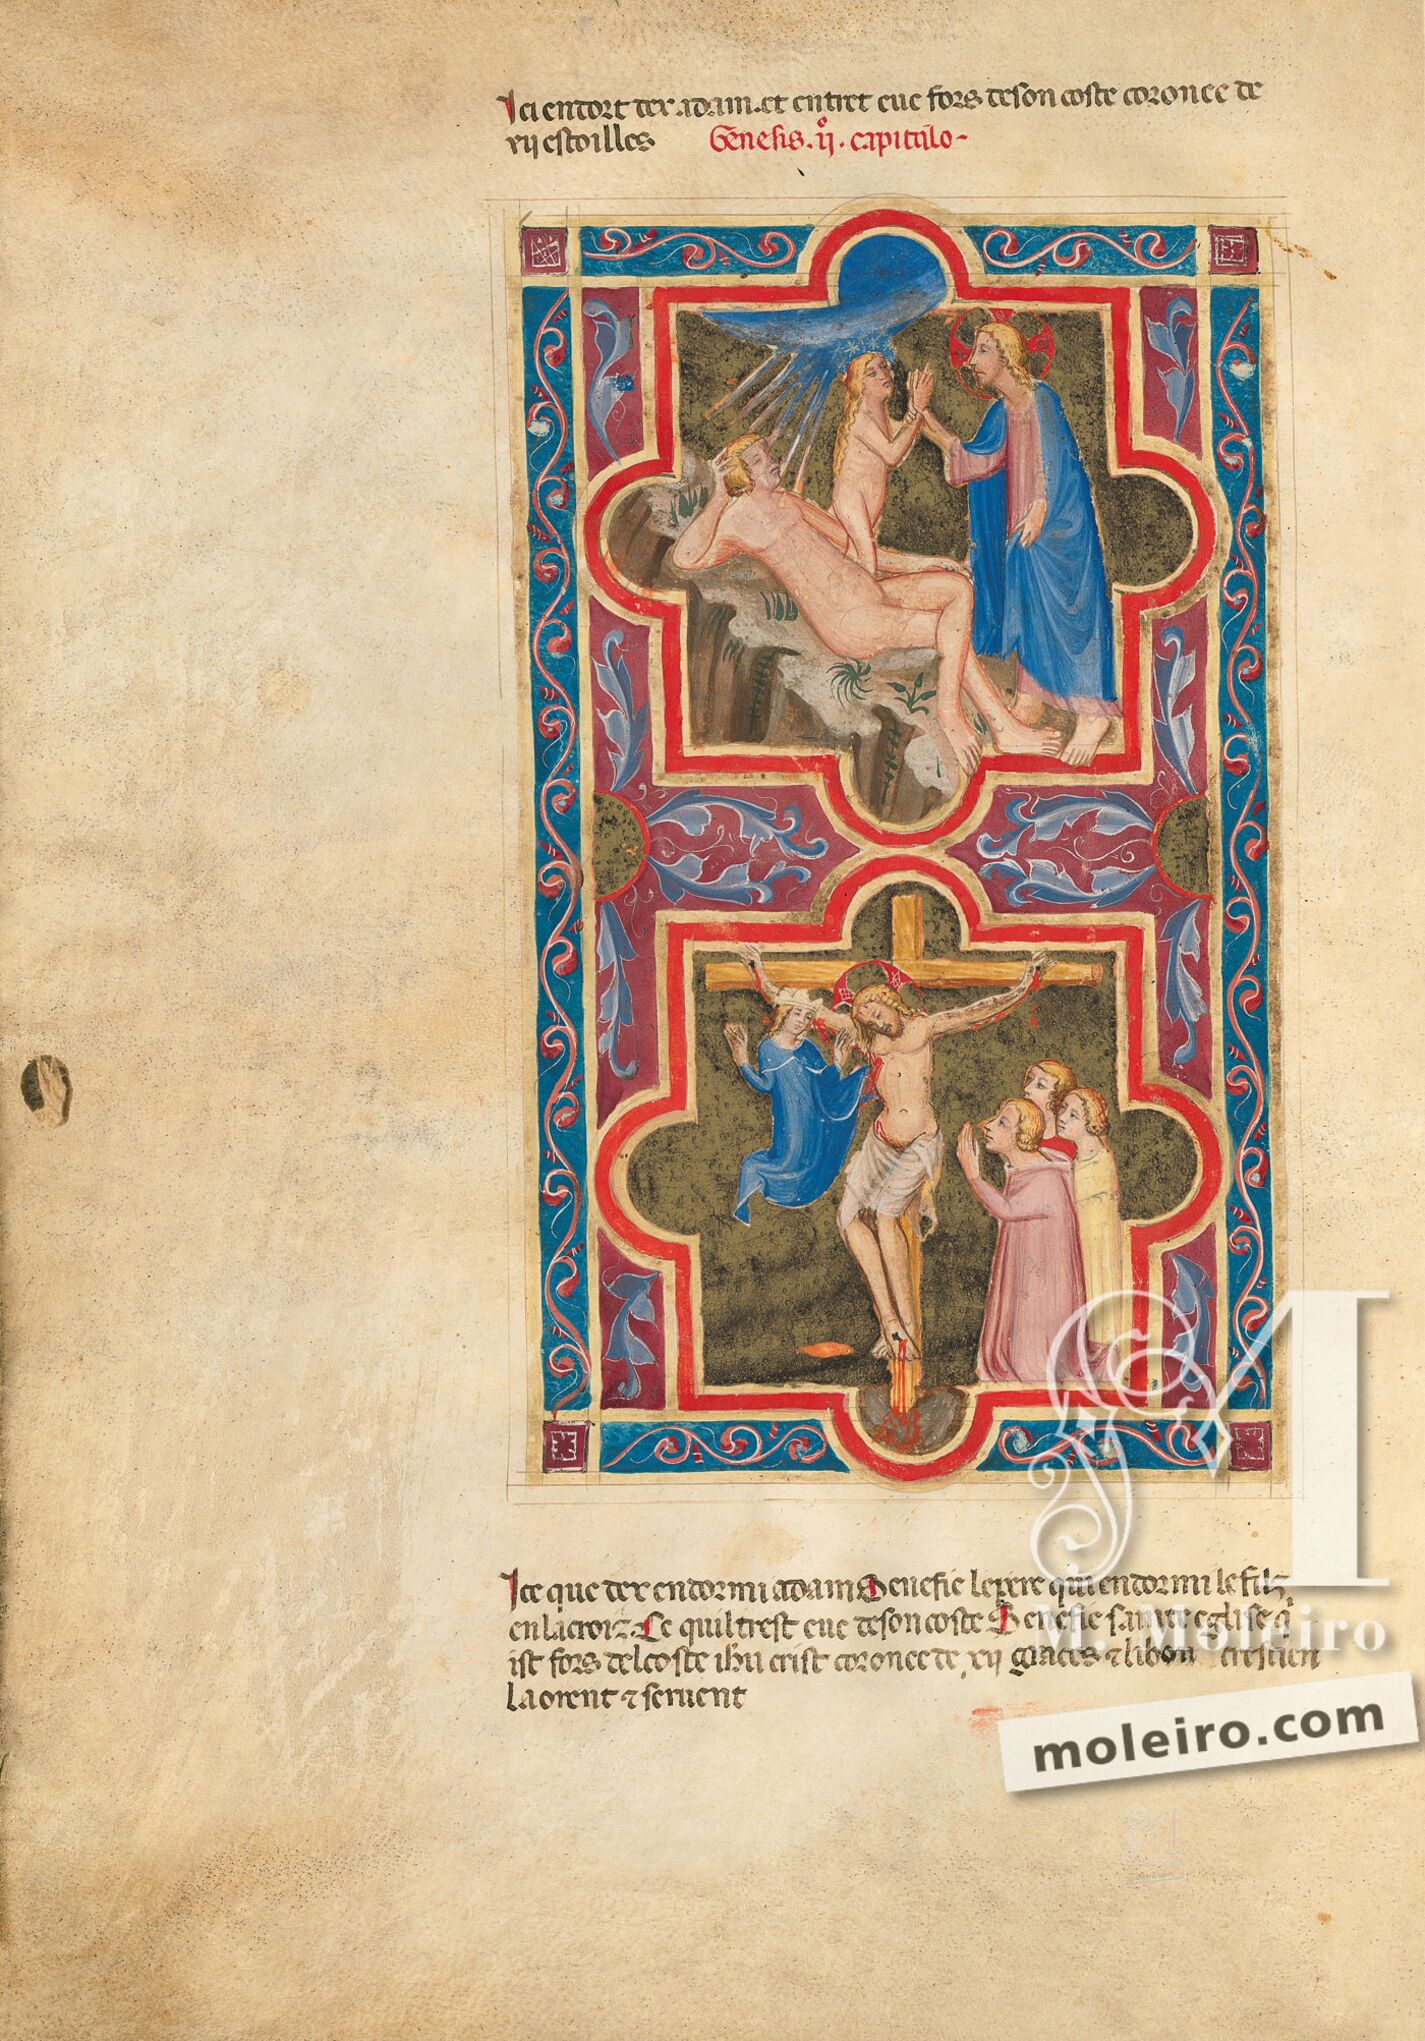 Ici endort dex .adam. et entret eue fors deson coste coronee de
xij estoilles Genesis .ij.o capitulo
Ice que dex endormi adam Senefie le pere qui endormi le filz
en la croiz. Ce quil trest eue de son coste Senefie sainte eglise q'
ist fors del coste ihu crist coronee de xij graces ⁊ li bon crestien
laorent ⁊ seruent
M. Moleiro
moleiro.com